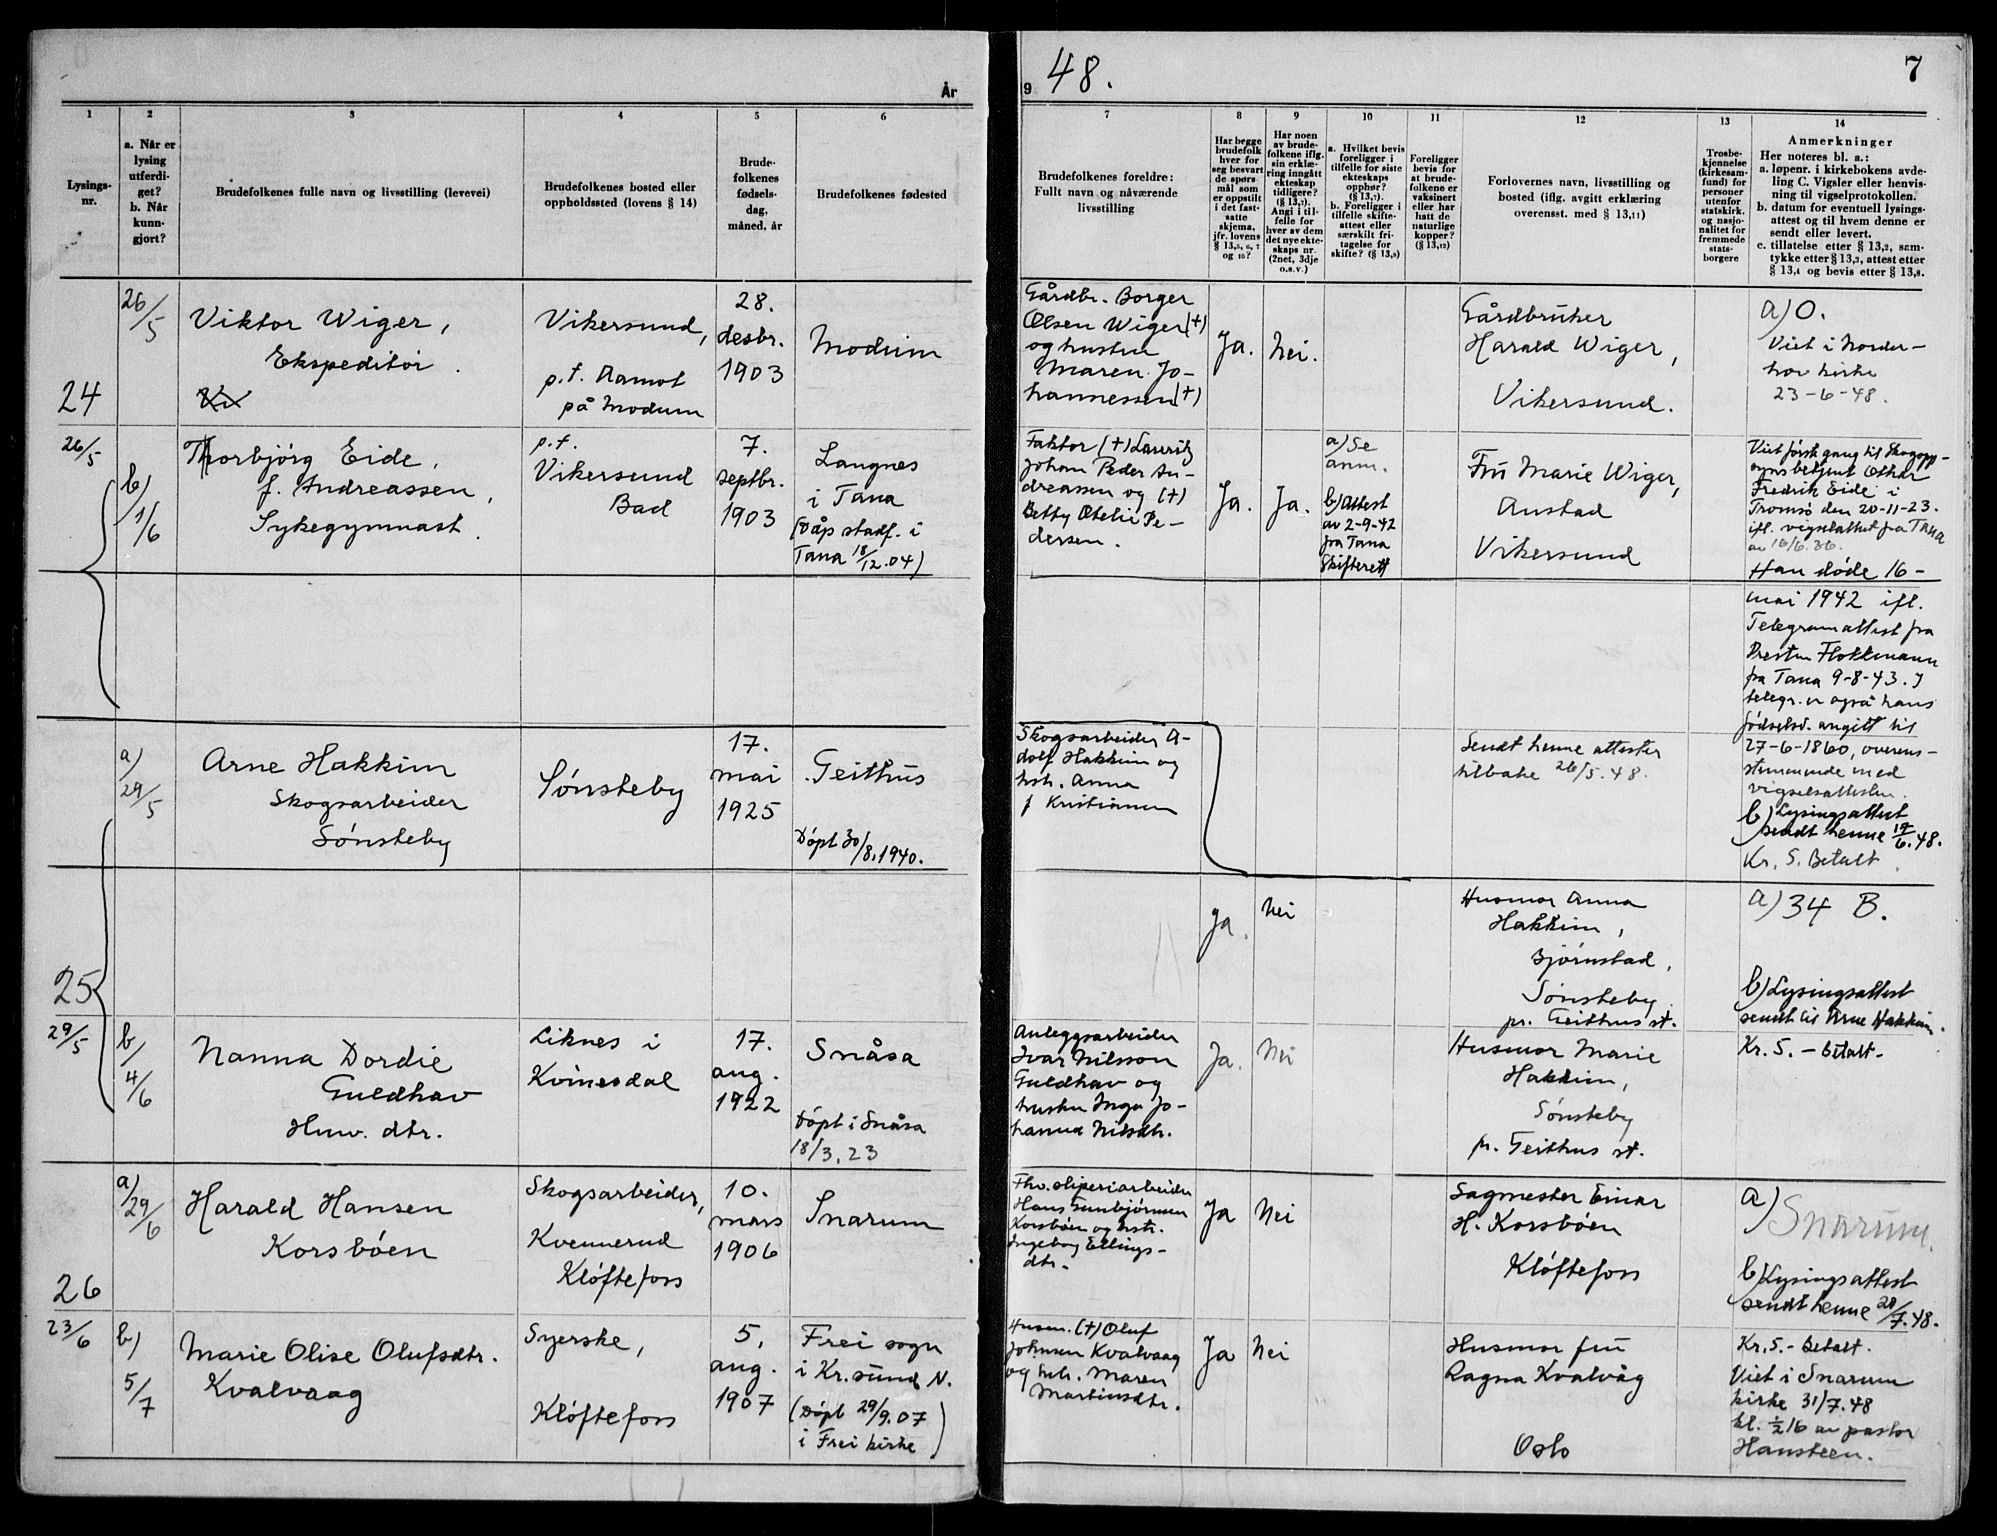 År
1
2
3
4
5
6
Lysings-
nr.
a. Når er
lysing
utferdi-
get?
b. Når
kunn-
gjort?
Brudefolkenes fulle navn og livsstilling (levevei)
Brudefolkenes bosted eller
oppholdssted (lovens § 14)
Brude-
folkenes
fødsels-
dag,
måned, år
Brudefolkenes fødested
24
26/5
Viktor Wiger,
Ekspeditør.
Vikersund,
p.t. Aamot
på Modum
28.
desbr.
1903
Modum
26/5
b/
1/6
Thorbjørg Eide,
f. Andreassen,
Sykegymnast.
p.t.
Vikersund
Bad
7.
septbr.
1903
Langnes
i Tana
(Dåp stadf. i
Tana 18/12.04)
25
a)
29/5
Arne Hakkim
Skogsarbeider
Sønsteby
Sønsteby
17.
mai
1925
Geithus
Døpt 30/8.1940.
29/5
b/
4/6
Nanna Dordie
Guldhav
Huw. dtr.
Liknes i
Kvinesdal
17.
aug.
1922
Snåsa
Døpt i Snåsa
18/3.23
26
a)
29/6
Harald Hansen
Korsbøen
Skogsarbeider,
Kvennerud
Kløftefoss
10.
mars
1906
Snarum
23/6
b)
5/7
Marie Olise Olufsdtr.
Kvalvaag
Syerske,
Kløftefoss
5.
aug.
1907
Frei sogn
i Kr.sund N.
(Døpt 29/9.07
i Frei kirke)
9 48.
7
7
8
9
10
11
12
13
14
Brudefolkenes foreldre:
Fullt navn og nåværende
livsstilling
Har begge
brudefolk
hver for
seg besvart
de spørs-
mål som
er oppstilt
i det fast-
satte
skjema,
jfr. lovens
§ 13,5, 6, 7
og 10?
Har noen
av brude-
folkene iflg.
sin erklæ-
ring inngått
ekteskap
tidligere?
(§ 13,7).
Angi i til-
felle for
hver av dem
det nye ekte-
skaps nr.
(2net, 3dje
o.s.v.)
a. Hvilket bevis
foreligger i
tilfelle for siste
ekteskaps
opphør?
(§ 13,7).
b. Foreligger i
tilfelle skifte-
attest eller
særskilt fri-
tagelse for
skifte? (§ 13,9)
Foreligger
bevis for
at brude-
folkene er
vaksinert
eller har
hatt de
naturlige
kopper?
(§ 13,12)
Forlovernes navn, livsstilling og
bosted (iflg. avgitt erklæring
overensst. med § 13,11)
Trosbe-
kjennelse
(kirkesam-
fund) for
personer
utenfor
statskirk.
og nasjo-
nalitet for
fremmede
stats-
borgere
Anmerkninger
Her noteres bl. a.:
a. løpenr. i kirkebokens avde-
ling C. Vigsler eller henvis-
ning til vigselprotokollen.
b. datum for eventuell lysings-
attest og til hvem denne er
sendt eller levert.
c. tillatelse etter § 13,2, sam-
tykke etter § 13,3, attest etter
§ 13,4 og bevis etter § 13,8.
Gårdbr. Borger
Olsen Wiger (+)
og hustru
Maren Jo-
hannessen (+)
Ja.
Nei.
Gårdbruker
Harald Wiger,
Vikersund.
a) O.
Viet i Norder-
hov kirke
23-6-48.
Faktor (+) Lauritz
Johan Peder An-
dreassen og (+)
Betty Otelie Pe-
dersen.
Ja.
Ja.
a) Se
anm.
b) Attest
av 2-9-42
fra Tana
Skifterett
Fru Marie Wiger,
Anstad
Vikersund
Viet første gang til Skogopp-
synsbetjent Othar
Fredrik Eide i
Tromsø den 20-11-23.
ifl. vigselattest fra Tana
av 16/6.36.
Han døde 16-
mai 1942 ifl.
Telegramattest fra
Presten Flokkmann
fra Tana 9-8-43. I
telegr. er også hans
fødselsd. angitt til
27-6-1860, overens-
stemmende med
vigselsattesten.
b) Lysingsattest
sendt henne 19/6.48.
Kr. 5. Betalt
Skogsarbeider A-
dolf Hakkim og
hstr. Anna
f. Kristiansen
Sendt henne attester
tilbake 26/5.48.
Ja.
Nei
Husmor Anna
Hakkim,
Bjørnstad,
Sønsteby
pr. Geithus st.
a) 34 B.
b) Lysingsattest
sendt til Arne Hakkim.
Anleggsarbeider
Ivar Nilsson
Guldhav og
hustru Inga Jo-
hanna Nilsdtr.
Ja.
Nei
Husmor Marie
Hakkim,
Sønsteby
pr. Geithus st.
Kr. 5. - Betalt-
Fhv. sliperiarbeider
Hans Gunbjørnsen
Korsbøen og hstr.
Ingeborg Ellings-
dtr.
Ja
Nei
Sagmester Einar
H. Korsbøen
Kløftefoss
a) Snarum.
b) Lysingsattest
sendt henne 28/7.48.
Husm. (+) Oluf
Johnsen Kvalvaag
og hstr. Maren
Martinsdtr.
Ja
Nei
Husmor fru
Ragna Kvalvåg
Oslo
Kr. 5. - Betalt.
Viet i Snarum
kirke 31/7.48
kl. ½16 av pastor
Hansteen.